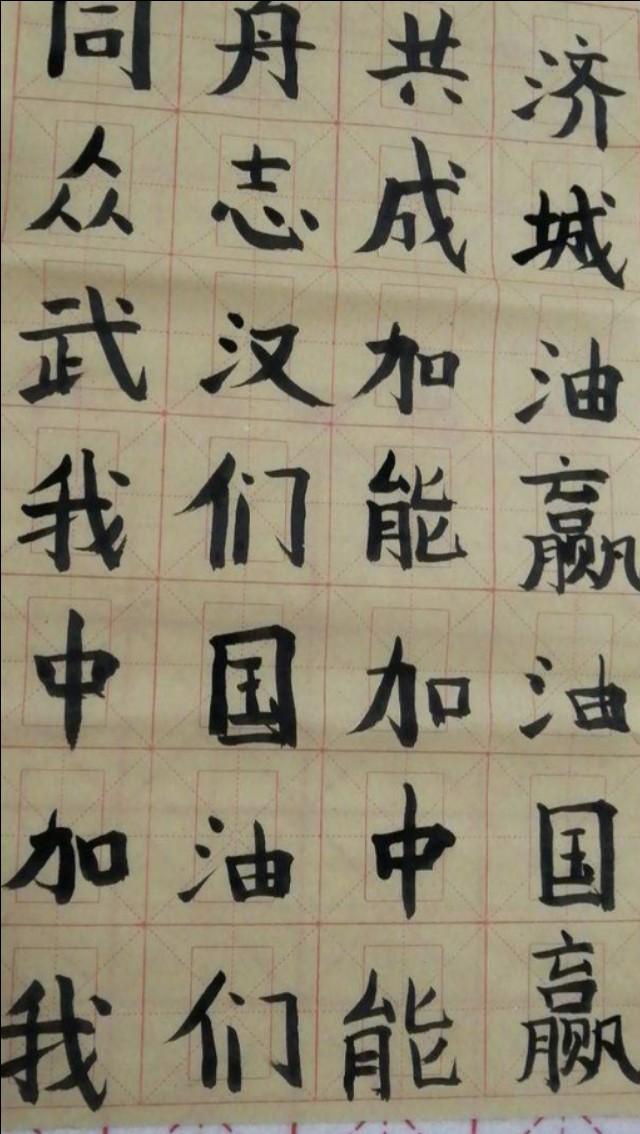 同舟共济
众志成城
武汉加油
我们能赢
中国加油
加油中国
我们能赢